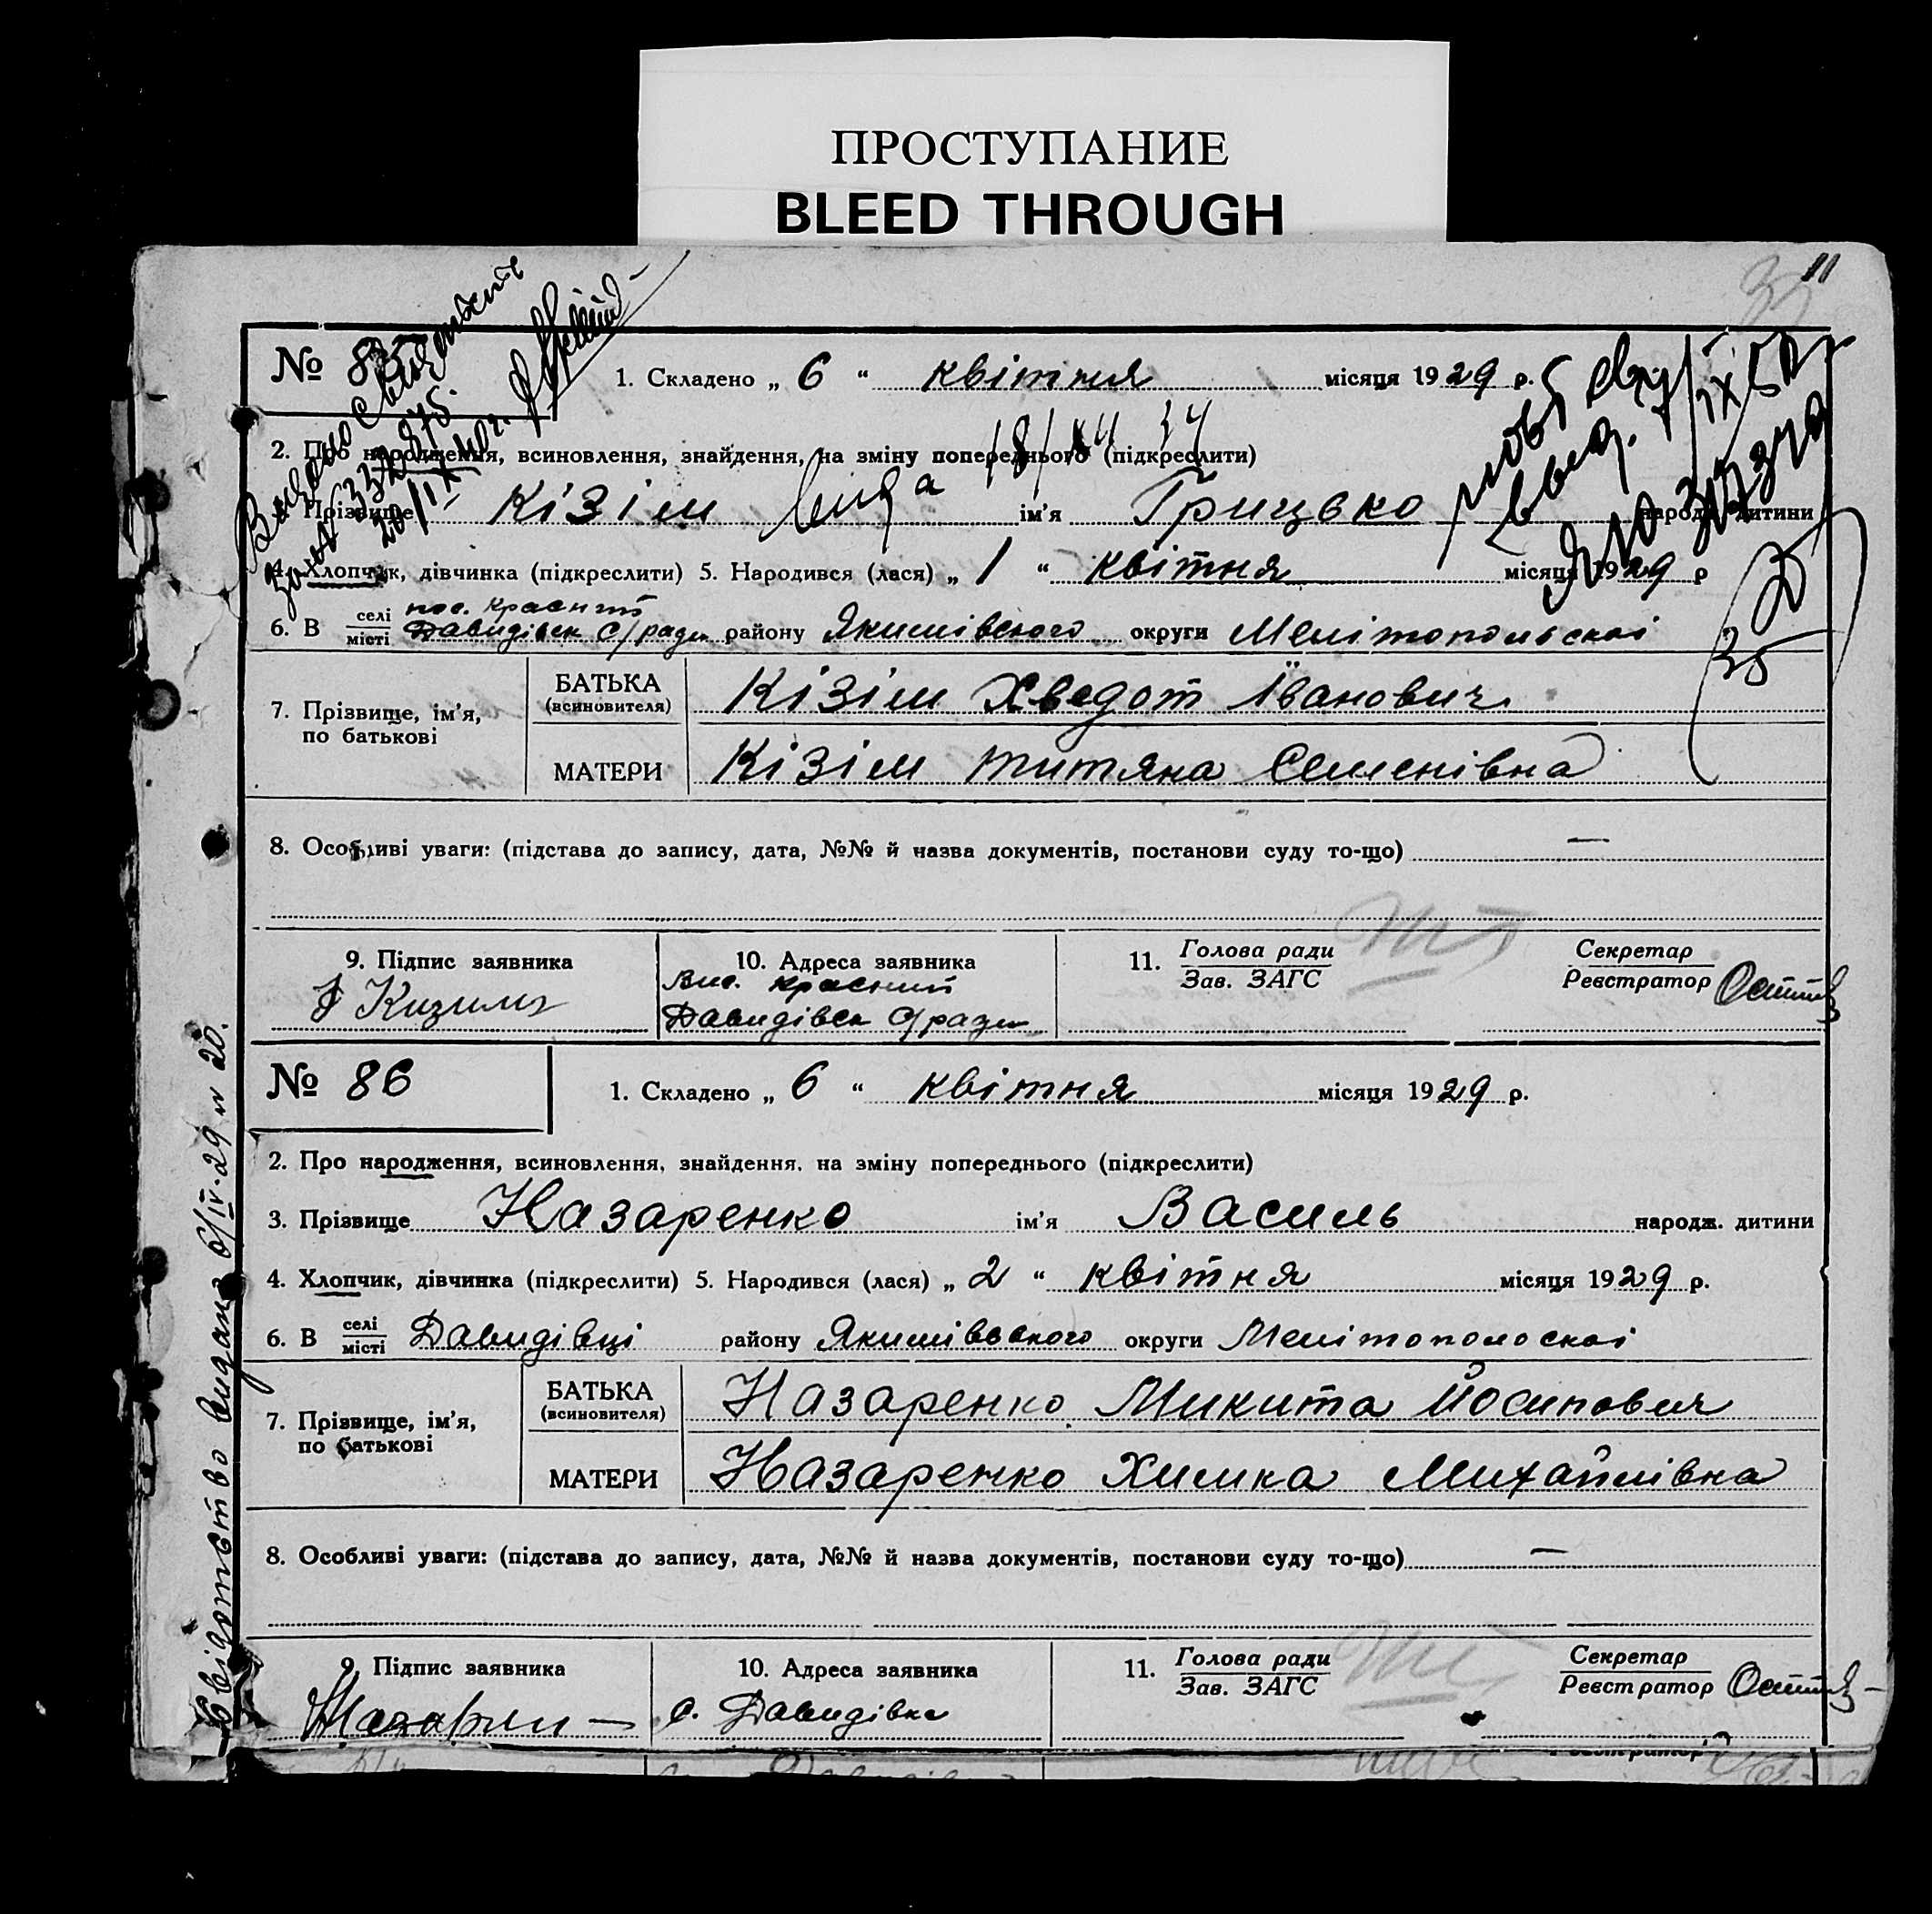 ПРОСТУПАНИЕ
BLEED THROUGH
11
№ 85
1. Складено „ 6 “ квітня місяця 1929 р.
2. Про народження, всиновлення, знайдення, на зміну попереднього (підкреслити)
3. Прізвище Кізім ім'я Грицько народж. дитини
4. Хлопчик, дівчинка (підкреслити) 5. Народився (лася) „ 1 “ квітня місяця 1929 р
пос. Красний
6. В селі місті Давидівск С/ради району Якимівського округи Мелітопольскоі
7. Прізвище, ім'я, по батькові
БАТЬКА (всиновителя) Кізім Хведот Іванович
МАТЕРИ Кізім Титяна Семенівна
35
8. Особливі уваги: (підстава до запису, дата, №№ й назва документів, постанови суду то-що) —
9. Підпис заявника
Кизимъ
10. Адреса заявника
Вис. Красний
Давидівск С/ради
11. Голова ради
Зав. ЗАГС
Секретар
Реєстратор
№ 86
1. Складено „ 6 “ квітня місяця 1929 р.
2. Про народження, всиновлення, знайдення, на зміну попереднього (підкреслити)
3. Прізвище Назаренко ім'я Василь народж. дитини
4. Хлопчик, дівчинка (підкреслити) 5. Народився (лася) „ 2 “ квітня місяця 1929 р.
6. В селі місті Давидівці району Якимівського округи Мелітополоскоі
7. Прізвище, ім'я, по батькові
БАТЬКА (всиновителя) Назаренко Микита Йосипович
МАТЕРИ Назаренко Химка Михайлівна
8. Особливі уваги: (підстава до запису, дата, №№ й назва документів, постанови суду то-що) —
9. Підпис заявника
10. Адреса заявника
с. Давидівка
11. Голова ради
Зав. ЗАГС
Секретар
Реєстратор
Свідотство видано 6/IV-29 р
Реєстратор